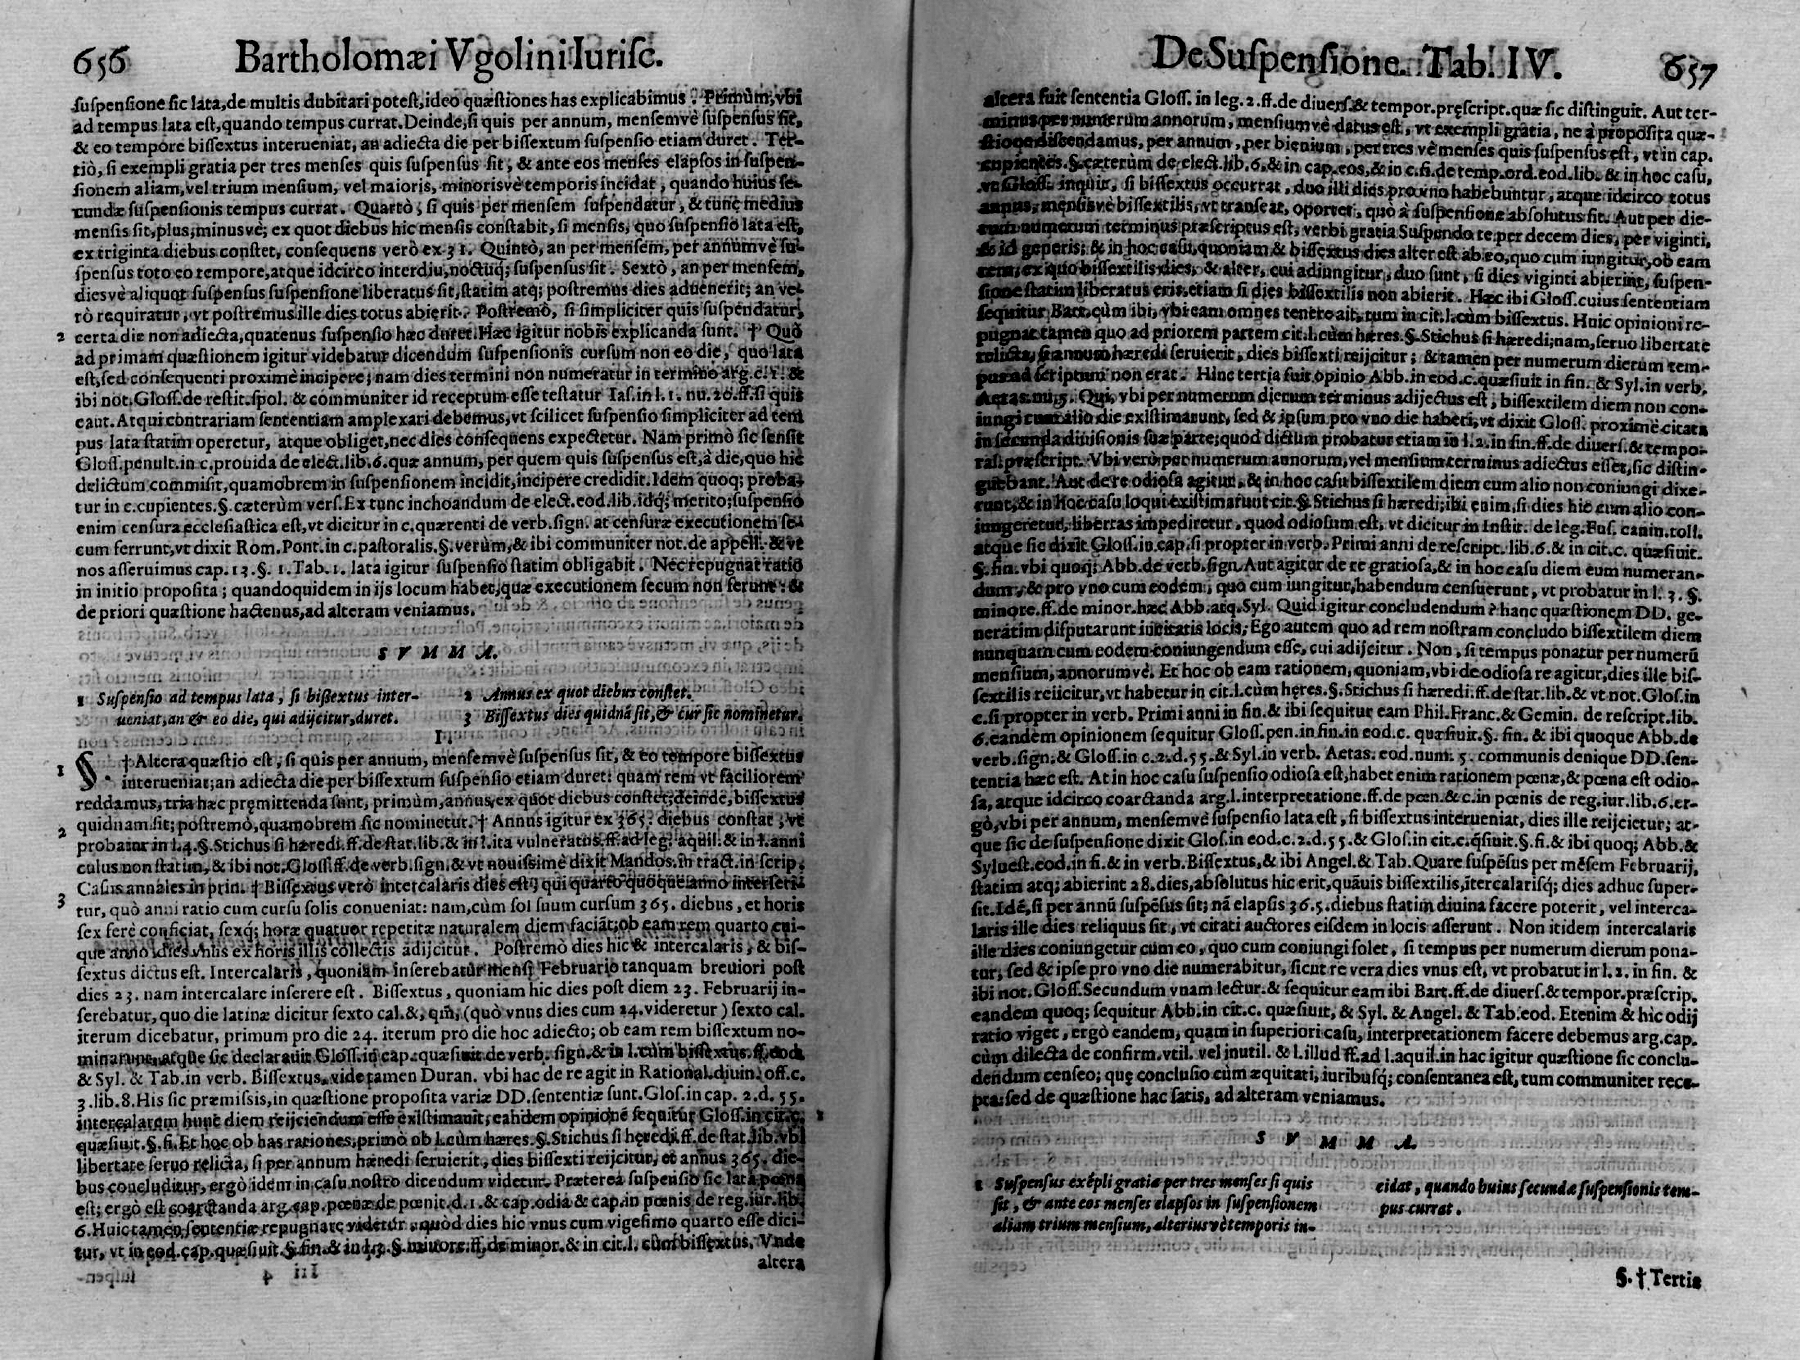 656 Bartholomæi Vgolini Iurisc.
suspensione sic lata, de multis dubitari potest, ideo quæstiones has explicabimus. Primùm, vbi
ad tempus lata est, quando tempus currat. Deinde, si quis per annum, mensemvè suspensus sit,
& eo tempore bissextus interueniat, an adiecta die per bissextum suspensio etiam duret. Ter-
tiò, si exempli gratia per tres menses quis suspensus sit, & ante eos menses elapsos in suspen-
sionem aliam, vel trium mensium, vel maioris, minorisvè temporis incidat, quando huius se-
cundæ suspensionis tempus currat. Quartò, si quis per mensem suspendatur, & tunc medius
mensis sit, plus, minusvè; ex quot diebus hic mensis constabit, si mensis, quo suspensio lata est,
ex triginta diebus constet, consequens verò ex 31. Quintò, an per mensem, per annumvè su-
spensus toto eo tempore, atque idcirco interdiu, noctuq; suspensus sit. Sextò, an per mensem,
diesvè aliquot suspensus suspensione liberatus sit, statim atq; postremus dies aduenerit; an ve-
rò requiratur, vt postremus ille dies totus abierit. Postremò, si simpliciter quis suspendatur,
2 certa die non adiecta, quatenus suspensio hæc duret. Hæc igitur nobis explicanda sunt. † Quò
ad primam quæstionem igitur videbatur dicendum suspensionis cursum non eo die, quo lata
est, sed consequenti proximè incipere; nam dies termini non numeratur in termino arg. c. 1. &
ibi not. Gloss. de restit. spol. & communiter id receptum esse testatur Ias. in l. 1. nu. 20. ff. si quis
caut. Atqui contrariam sententiam amplexari debemus, vt scilicet suspensio simpliciter ad tem
pus lata statim operetur, atque obliget, nec dies consequens expectetur. Nam primò sic sensit
Gloss. penult. in c. prouida de elect. lib. 6. quæ annum, per quem quis suspensus est, à die, quo hic
delictum commisit, quamobrem in suspensionem incidit, incipere credidit. Idem quoq; proba-
tur in c. cupientes. §. cæterùm vers. Ex tunc inchoandum de elect. eod. lib. idq; merito; suspensio
enim censura ecclesiastica est, vt dicitur in c. quærenti de verb. sign. at censuræ executionem se-
cum ferrunt, vt dixit Rom. Pont. in c. pastoralis. §. verùm, & ibi communiter not. de appell. & vt
nos asseruimus cap. 13. §. 1. Tab. 1. lata igitur suspensio statim obligabit. Nec repugnat ratio
in initio proposita; quandoquidem in ijs locum habet, quæ executionem secum non ferunt: &
de priori quæstione hactenus, ad alteram veniamus.
S V M M A.
1 Suspensio ad tempus lata, si bissextus inter-
ueniat, an & eo die, qui adijcitur, duret.
2 Annus ex quot diebus constet.
3 Bissextus dies quidnã sit, & cur sic nominetur.
I I.
1 §. † Altera quæstio est, si quis per annum, mensemvè suspensus sit, & eo tempore bissextus
interueniat; an adiecta die per bissextum suspensio etiam duret: quam rem vt faciliorem
reddamus, tria hæc pręmittenda sunt, primùm, annus, ex quot diebus constet; deinde, bissextus
quidnam sit; postremò, quamobrem sic nominetur. † Annus igitur ex 365. diebus constat, vt
2 probatur in l. 4. §. Stichus si hæredi. ff. de stat. lib. & in l. ita vulneratus. ff. ad leg. aquil. & in l. anni
culus non statim, & ibi not. Gloss. ff. de verb. sign. & vt nouissimè dixit Mandos. in tract. in scrip.
Casus annales in prin. † Bissextus verò intercalaris dies est; qui quarto quoque anno interseri-
3 tur, quò anni ratio cum cursu solis conueniat: nam, cùm sol suum cursum 365. diebus, et horis
sex ferè conficiat, sexq; horæ quatuor repetitæ naturalem diem faciãt; ob eam rem quarto cui-
que anno dies vnus ex horis illis collectis adijcitur. Postremò dies hic & intercalaris, & bis-
sextus dictus est. Intercalaris, quoniam inserebatur mensi Februario tanquam breuiori post
dies 23. nam intercalare inserere est. Bissextus, quoniam hic dies post diem 23. Februarij in-
serebatur, quo die latinæ dicitur sexto cal. &, qm, (quò vnus dies cum 24. videretur) sexto cal.
iterum dicebatur, primum pro die 24. iterum pro die hoc adiecto; ob eam rem bissextum no-
minarunt, atque sic declarauit Gloss. in cap. quæsiuit de verb. sign. & in l. cùm bissextus. ff. eod.
& Syl. & Tab. in verb. Bissextus. vide tamen Duran. vbi hac de re agit in Rational. diuin. off. c.
3. lib. 8. His sic præmissis, in quæstione proposita variæ DD. sententiæ sunt. Glos. in cap. 2. d. 55.
intercalarem hunc diem reijciendum esse existimauit; eandem opinionẽ sequitur Gloss. in cit. c.
quæsiuit. §. fi. Et hoc ob has rationes; primò ob l. cùm hæres. §. Stichus si hęredi. ff. de stat. lib. vbi
libertate seruo relicta, si per annum hæredi seruierit, dies bissexti reijcitur, et annus 365. die-
bus concluditur, ergò idem in casu nostro dicendum videtur. Præterea suspensio sic lata pœna
est; ergò est coarctanda arg. cap. pœnæ de pœnit. d. 1. & cap. odia & cap. in pœnis de reg. iur. lib.
6. Huic tamen sententiæ repugnare videtur, quòd dies hic vnus cum vigesimo quarto esse dici-
tur, vt in eod. cap. quæsiuit. §. fin. & in l. 3. §. minore. ff. de minor. & in cit. l. cùm bissextus. Vnde
altera
De Suspensione. Tab. IV. 657
altera fuit sententia Gloss. in leg. 2. ff. de diuers. & tempor. pręscript. quæ sic distinguit. Aut ter-
minus per numerum annorum, mensiumvè datus est, vt exempli gratia, ne à proposita quæ-
stione discendamus, per annum, per bienium, per tres vè menses quis suspensus est, vt in cap.
cupientes. §. cæterùm de elect. lib. 6. & in cap. eos, & in c. fi. de temp. ord. eod. lib. & in hoc casu,
vt Gloss. inquit, si bissextus occurrat, duo illi dies pro vno habebuntur, atque idcirco totus
annus, mensisvè bissextilis, vt transeat, oportet, quò à suspensione absolutus sit. Aut per die-
rum numerum terminus præscriptus est, verbi gratia Suspendo te per decem dies, per viginti,
& id generis; & in hoc casu, quoniam & bissextus dies alter est ab eo, quo cum iungitur, ob eam
rem, ex quo bissextilis dies, & alter, cui adiungitur, duo sunt, si dies viginti abierint, suspen-
sione statim liberatus erit, etiam si dies bissextilis non abierit. Hæc ibi Gloss. cuius sententiam
sequitur Bart. cùm ibi, vbi eam omnes tenere ait, tum in cit. l. cùm bissextus. Huic opinioni re-
pugnat tamen quo ad priorem partem cit. l. cùm hæres. §. Stichus si hæredi; nam, seruo libertate
relicta, si annum hæredi seruierit, dies bissexti reijcitur; & tamen per numerum dierum tem-
pus ad scriptum non erat. Hinc tertia fuit opinio Abb. in eod. c. quæsiuit in fin. & Syl. in verb.
Aetas. nu. 5. Qui, vbi per numerum dierum terminus adiectus est, bissextilem diem non con-
iungi cum alio die existimarunt, sed & ipsum pro vno die haberi, vt dixit Gloss. proximè citata
in secunda diuisionis suæ parte; quod dictum probatur etiam in l. 2. in fin. ff. de diuers. & tempo-
ral. præscript. Vbi verò per numerum annorum, vel mensium terminus adiectus esset, sic distin-
guebant. Aut de re odiosa agitur, & in hoc casu bissextilem diem cum alio non coniungi dixe-
runt, & in hoc casu loqui existimarunt cit. §. Stichus si hæredi; ibi enim, si dies hic cum alio con-
iungeretur, libertas impediretur, quod odiosum est, vt dicitur in Instit. de leg. Fus. canin. toll.
atque sic dixit Gloss. in cap. si propter in verb. Primi anni de rescript. lib. 6. & in cit. c. quæsiuit.
§. fin. vbi quoq; Abb. de verb. sign. Aut agitur de re gratiosa, & in hoc casu diem eum numeran-
dum, & pro vno cum eodem, quo cum iungitur, habendum censuerunt, vt probatur in l. 3. §.
minore. ff. de minor. hæc Abb. atq. Syl. Quid igitur concludendum? hanc quæstionem DD. ge-
neratim disputarunt in citatis locis; Ego autem quo ad rem nostram concludo bissextilem diem
nunquam cum eodem coniungendum esse, cui adijcitur. Non, si tempus ponatur per numerũ
mensium, annorumvè. Et hoc ob eam rationem, quoniam, vbi de odiosa re agitur, dies ille bis-
sextilis reiicitur, vt habetur in cit. l. cùm hęres. §. Stichus si hæredi. ff. de stat. lib. & vt not. Glos. in
c. si propter in verb. Primi anni in fin. & ibi sequitur eam Phil. Franc. & Gemin. de rescript. lib.
6. eandem opinionem sequitur Gloss. pen. in fin. in eod. c. quæsiuit. §. fin. & ibi quoque Abb. de
verb. sign. & Gloss. in c. 2. d. 55. & Syl. in verb. Aetas. eod. num. 5. communis denique DD. sen-
tentia hæc est. At in hoc casu suspensio odiosa est, habet enim rationem pœnæ, & pœna est odio-
sa, atque idcirco coarctanda arg. l. interpretatione. ff. de pœn. & c. in pœnis de reg. iur. lib. 6. er-
gò, vbi per annum, mensemvè suspensio lata est, si bissextus interueniat, dies ille reijcietur; at-
que sic de suspensione dixit Glos. in eod. c. 2. d. 55. & Glos. in cit. c. q̃siuit. §. fi. & ibi quoq; Abb. &
Syluest. eod. in fi. & in verb. Bissextus, & ibi Angel. & Tab. Quare suspẽsus per mẽsem Februarij,
statim atq; abierint 28. dies, absolutus hic erit, quãuis bissextilis, ītercalarisq; dies adhuc super-
sit. Idẽ, si per annũ suspẽsus sit; nã elapsis 365. diebus statim diuina facere poterit, vel interca-
laris ille dies reliquus sit, vt citati auctores eisdem in locis asserunt. Non itidem intercalaris
ille dies coniungetur cum eo, quo cum coniungi solet, si tempus per numerum dierum pona-
tur; sed & ipse pro vno die numerabitur, sicut re vera dies vnus est, vt probatur in l. 2. in fin. &
ibi not. Gloss. Secundum vnam lectur. & sequitur eam ibi Bart. ff. de diuers. & tempor. præscrip.
eandem quoq; sequitur Abb. in cit. c. quæsiuit, & Syl. & Angel. & Tab. eod. Etenim & hic odij
ratio viget, ergò eandem, quam in superiori casu, interpretationem facere debemus arg. cap.
cùm dilecta de confirm. vtil. vel inutil. & l. illud ff. ad l. aquil. in hac igitur quæstione sic conclu-
dendum censeo; quę conclusio cùm æquitati, iuribusq; consentanea est, tum communiter rece-
pta: sed de quæstione hac satis, ad alteram veniamus.
S V M M A.
1 Suspensus exẽpli gratia per tres menses si quis
sit, & ante eos menses elapsos in suspensionem
aliam trium mensium, alterius vè temporis in-
cidat, quando huius secundæ suspensionis tem-
pus currat.
§. † Tertia